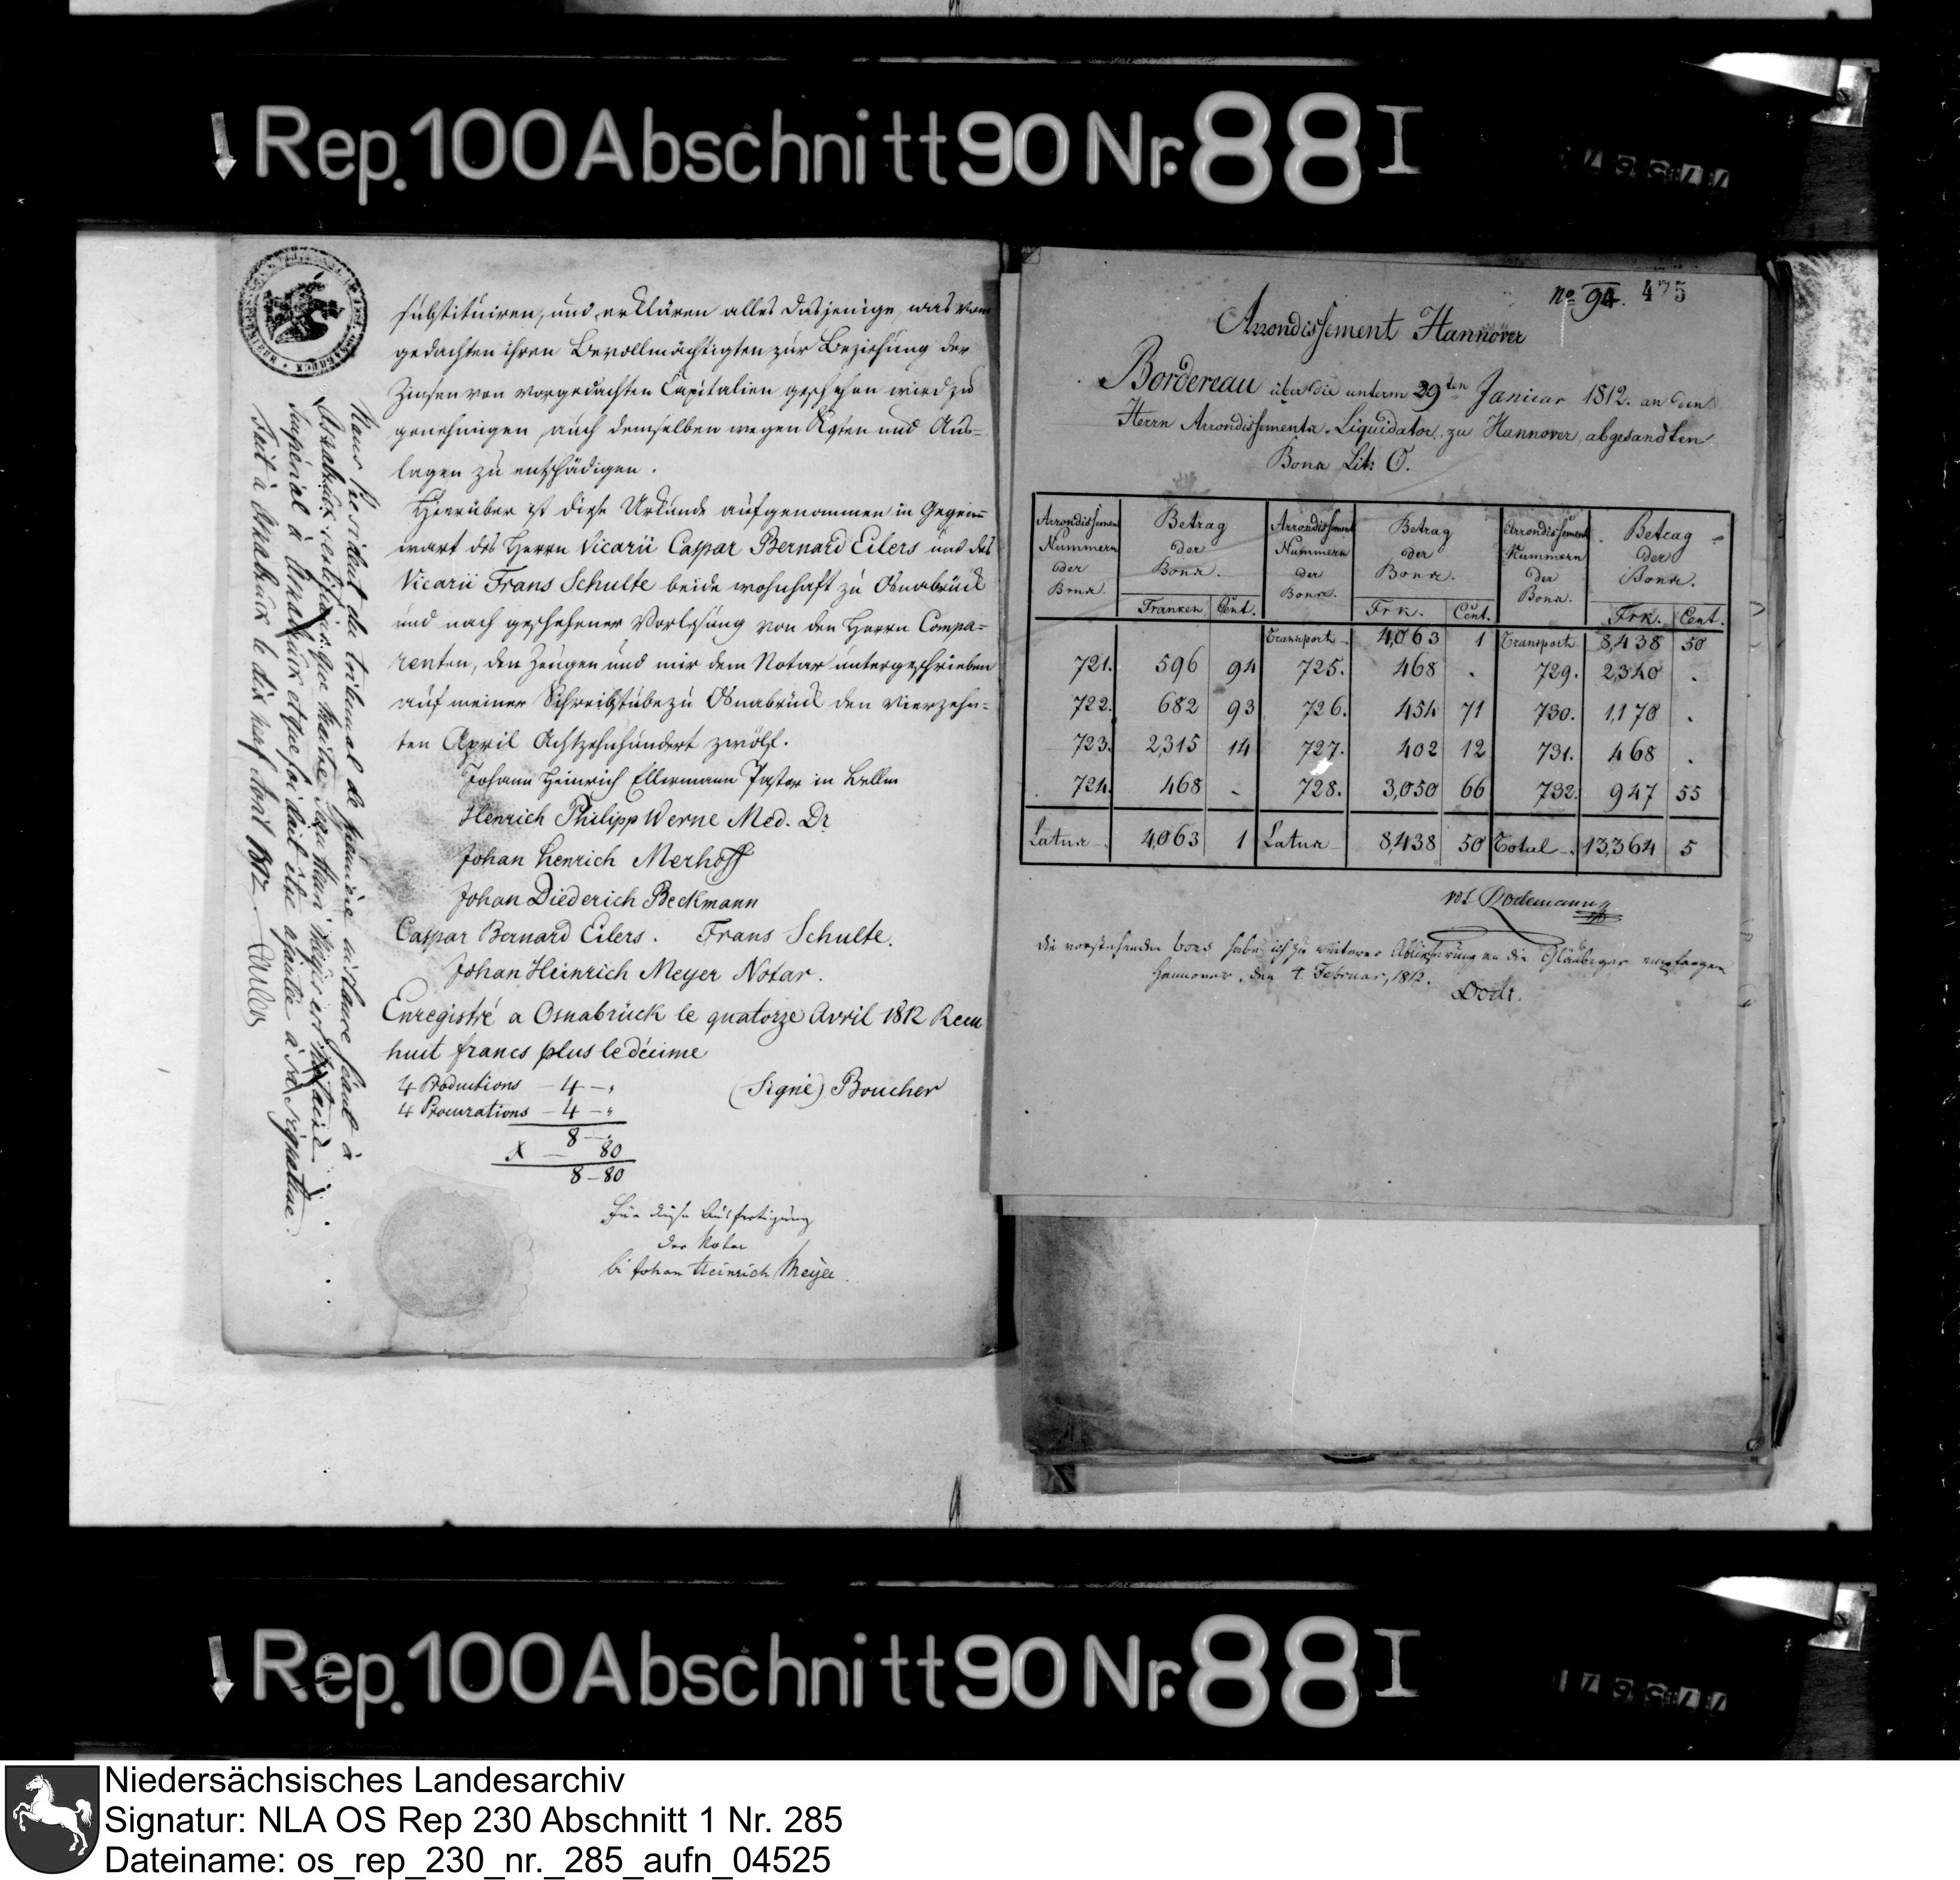 Rep. 100 Abschnitt 90 Nr. 88 I
substituiren, und erklären alles dasjenige, was von
gedachten ihren Bevollmächtigten zur Beziehung der
Zinsen von vorgedachten Capitalien geschehen wird zu
genehmigen, auch demselben wegen Kosten und Aus=
lagen zu entschädigen.
Hierüber ist diese Urkunde aufgenommen in Gegen=
wart des Herrn Vicarii Caspar Bernard Eilers und des
Vicarii Frans Schulte beide wohnhaft zu Osnabrück
und nach geschehener Vorlesung von den Herrn Compa=
renten, den Zeugen und mir dem Notar unterschrieben
auf meiner Schreibstube zu Osnabrück den vierzehn=
ten April Achtzehnhundert zwölf.
Johann Heinrich Ellermann Pastor in Bellm
Henrich Philipp Werne Med. Dr
Johan Henrich Merhoff
Johan Diederich Beckmann
Caspar Bernard Eilers. Frans Schulte.
Johan Heinrich Meyer Notar.
Enregistré a Osnabrück le quatorze Avril 1812 Recu
huit francs plus le décime
4 Productions – 4 –
4 Procurations – 4 –
8 –
X – 80
8 – 80
(Signé) Boucher
Für diese Ausfertigung
der Notar
Johan Heinrich Meyer
Nous Président du tribunal de première instance séant à
Osnabrück certifions que Maitre Jean Henri Meyer est Notaire
Impérial à Osnabrück et que foi doit être ajoutée à sa signature.
Fait à Osnabrück le dix neuf Avril 1812.
no 94. 475
Arrondissement Hannover
Bordereau über die unterm 29ten Januar 1812. an den
Herrn Arrondissements-Liquidator zu Hannover abgesandten
Bons Litr. O.
Arrondissement Nummern der Bons. Betrag der Bons. Arrondissement Nummern der Bons. Betrag der Bons. Arrondissement Nummern der Bons. Betrag der Bons.
Franken Cent. Frk. Cent. Frk. Cent.
Transport 4,063 1 Transport 8,438 50
721. 596 94 725. 468 . 729. 2,340 .
722. 682 93 726. 454 71 730. 1,170 .
723. 2,315 14 727. 402 12 731. 468 .
724. 468 - 728. 3,050 66 732. 947 55
Latus 4,063 1 Latus 8,438 50 Total 13,364 5
Bodemann
Die vorstehenden bons habe ich zu weiterer Ablieferung an die Gläubiger empfangen
Hannover, den 4. Februar, 1812.
Rep. 100 Abschnitt 90 Nr. 88 I
Niedersächsisches Landesarchiv
Signatur: NLA OS Rep 230 Abschnitt 1 Nr. 285
Dateiname: os_rep_230_nr._285_aufn_04525